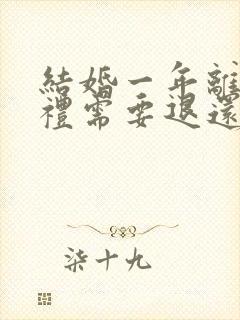 結婚一年離
禮需要退還
柒十九